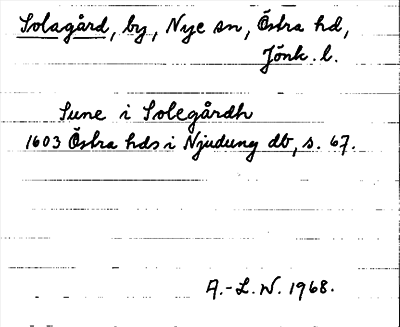 Solagård, by, Nye sn, Östra hd,
Jönk. l.
Sune i Solegårdh
1603 Östra hds i Njudung db, s. 67.
A.-L. W. 1968.